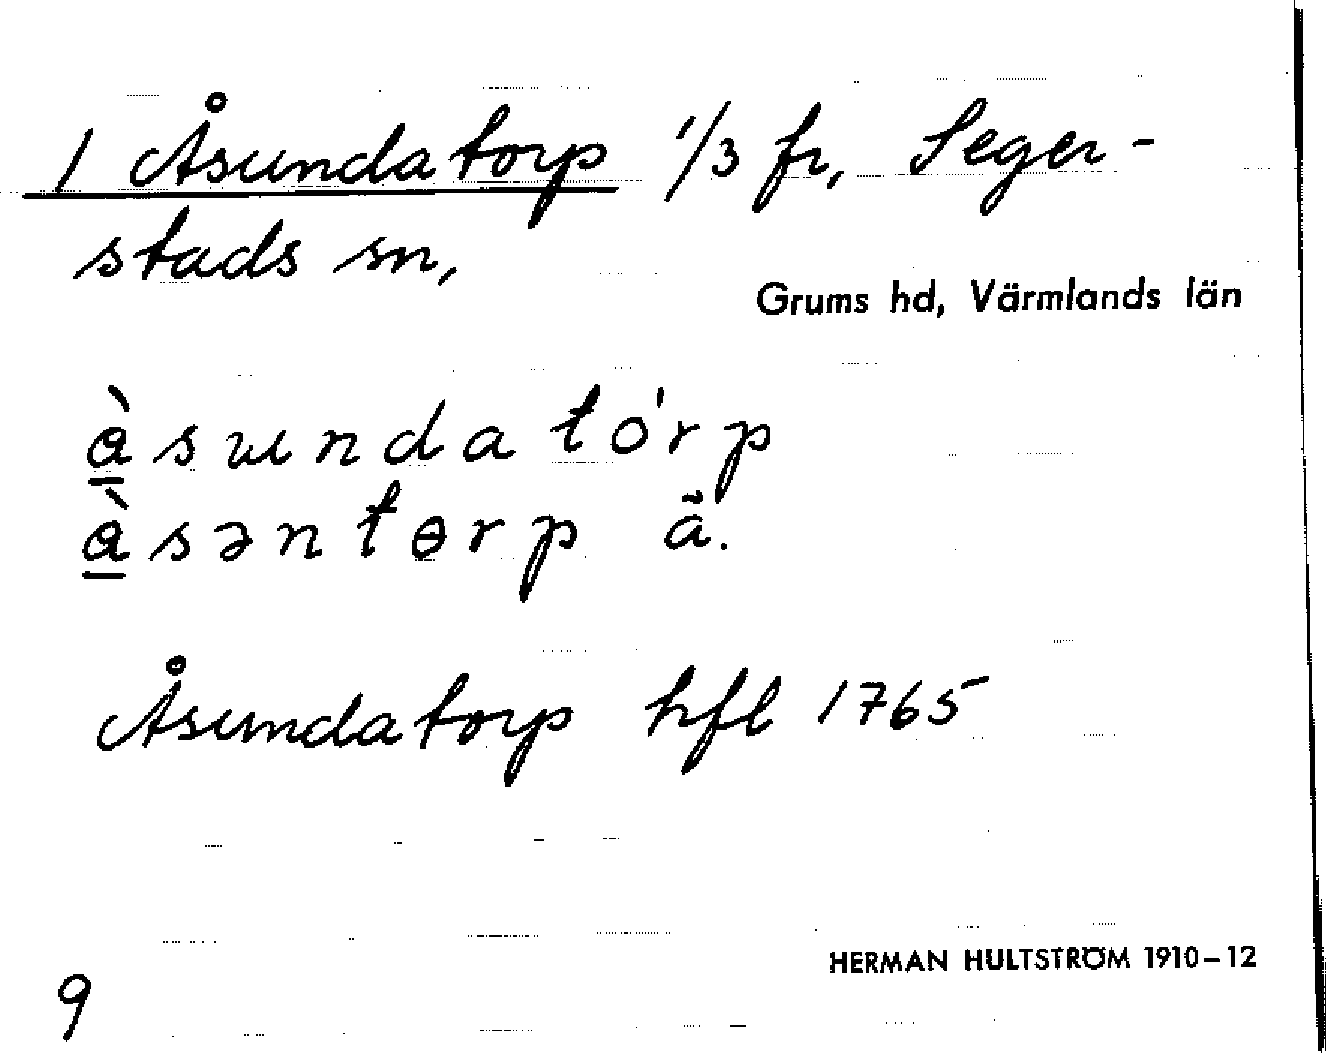 1 Åsundatorp 1/3 fr, Seger-
stads sn,
Grums hd, Värmlands län
à̱sɯndatórp
à̱səntɵrp ã.
Åsundatorp hfl 1765
HERMAN HULTSTRÖM 1910–12
9